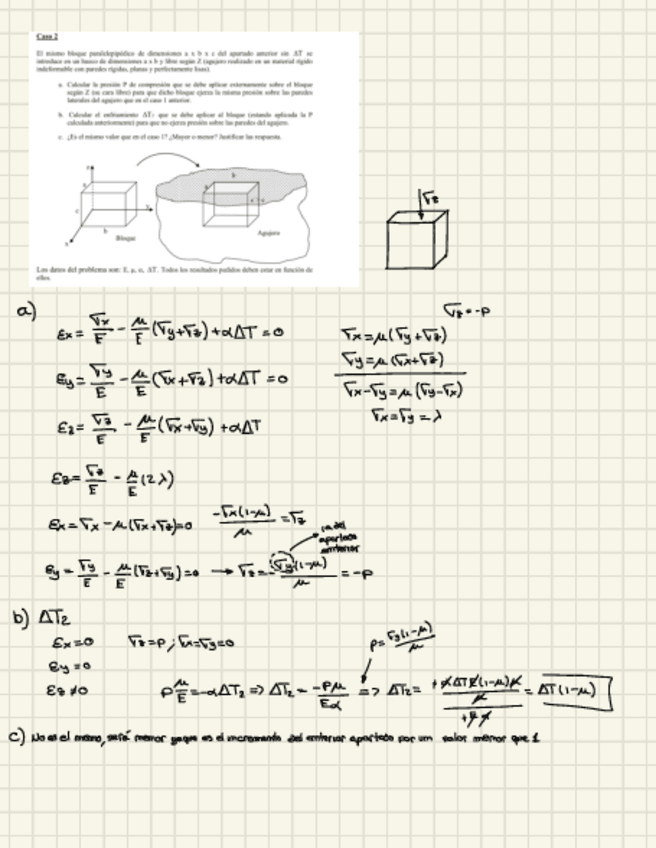 Caso 2
El mismo bloque paralelepipédico de dimensiones a x b x c del apartado anterior sin ΔT se
introduce en un hueco de dimensiones a x b y libre según Z (agujero realizado en un material rígido
indeformable con paredes rígidas, planas y perfectamente lisas).
a. Calcular la presión P de compresión que se debe aplicar externamente sobre el bloque
según Z (su cara libre) para que dicho bloque ejerza la misma presión sobre las paredes
laterales del agujero que en el caso 1 anterior.
b. Calcular el enfriamiento ΔT₂ que se debe aplicar al bloque (estando aplicada la P
calculada anteriormente) para que no ejerza presión sobre las paredes del agujero.
c. ¿Es el mismo valor que en el caso 1? ¿Mayor o menor? Justificar la respuesta.
b
c
b
x
Bloque
Agujero
Los datos del problema son: E, μ, α, ΔT. Todos los resultados pedidos deben estar en función de
ellos.
σz
a)
σz=-p
εx = σx/E - μ/E (σy+σz) + αΔT = 0
σx = μ(σy+σz)
εy = σy/E - μ/E (σx+σz) + αΔT = 0
σy = μ(σx+σz)
σx-σy = μ(σy-σx)
σx = σy = λ
εz = σz/E - μ/E (σx+σy) + αΔT
εz = σz/E - μ/E (2λ)
εx = σx - μ(σx+σz) = 0
-σx(1-μ)/μ = σz
apartado
anterior
εy = σy/E - μ/E (σz+σy) = 0 → σz = -σy(1-μ)/μ = -p
b) ΔT₂
εx = 0
σz = p ; σx = σy = 0
p = σy(1-μ)/μ
εy = 0
εz ≠ 0
p μ/E = -αΔT₂ => ΔT₂ = -pμ/Eα => ΔT₂ = +EαΔT(1-μ)μ/μ/+Eα = ΔT(1-μ)
c) No es el mismo, será menor ya que es el incremento del anterior apartado por un valor menor que 1